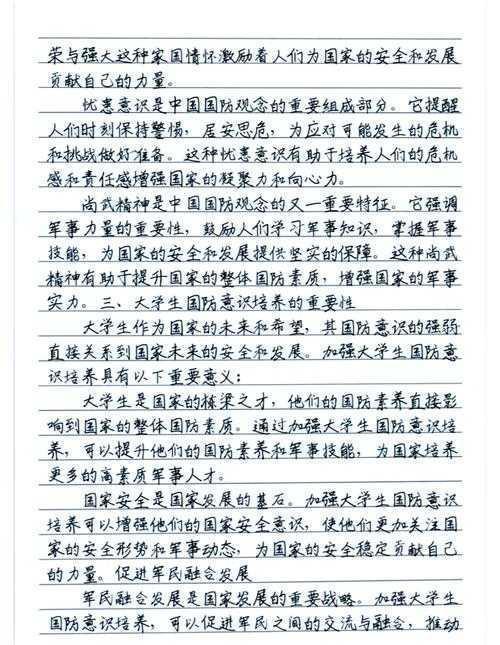 荣与强大这种家国情怀激励着人们为国家的安全和发展
贡献自己的力量。
忧患意识是中国国防观念的重要组成部分。它提醒
人们时刻保持警惕，居安思危，为应对可能发生的危机
和挑战做好准备。这种忧患意识有助于培养人们的危机
感和责任感增强国家的凝聚力和向心力。
尚武精神是中国国防观念的又一重要特征。它强调
军事力量的重要性，鼓励人们学习军事知识，掌握军事
技能，为国家的安全和发展提供坚实的保障。这种尚武
精神有助于提升国家的整体国防素质，增强国家的军事
实力。三、大学生国防意识培养的重要性
大学生作为国家的未来和希望，其国防意识的强弱
直接关系到国家未来的安全和发展。加强大学生国防意
识培养具有以下重要意义；
大学生是国家的栋梁之才，他们的国防素养直接影
响到国家的整体国防素质。通过加强大学生国防意识培
养，可以提升他们的国防素养和军事技能，为国家培养
更多的高素质军事人才。
国家安全是国家发展的基石。加强大学生国防意识
培养可以增强他们的国家安全意识，使他们更加关注国
家的安全形势和军事动态，为国家的安全稳定贡献自己
的力量。促进军民融合发展
军民融合发展是国家发展的重要战略。加强大学生
国防意识培养，可以促进军民之间的交流与融合，推动